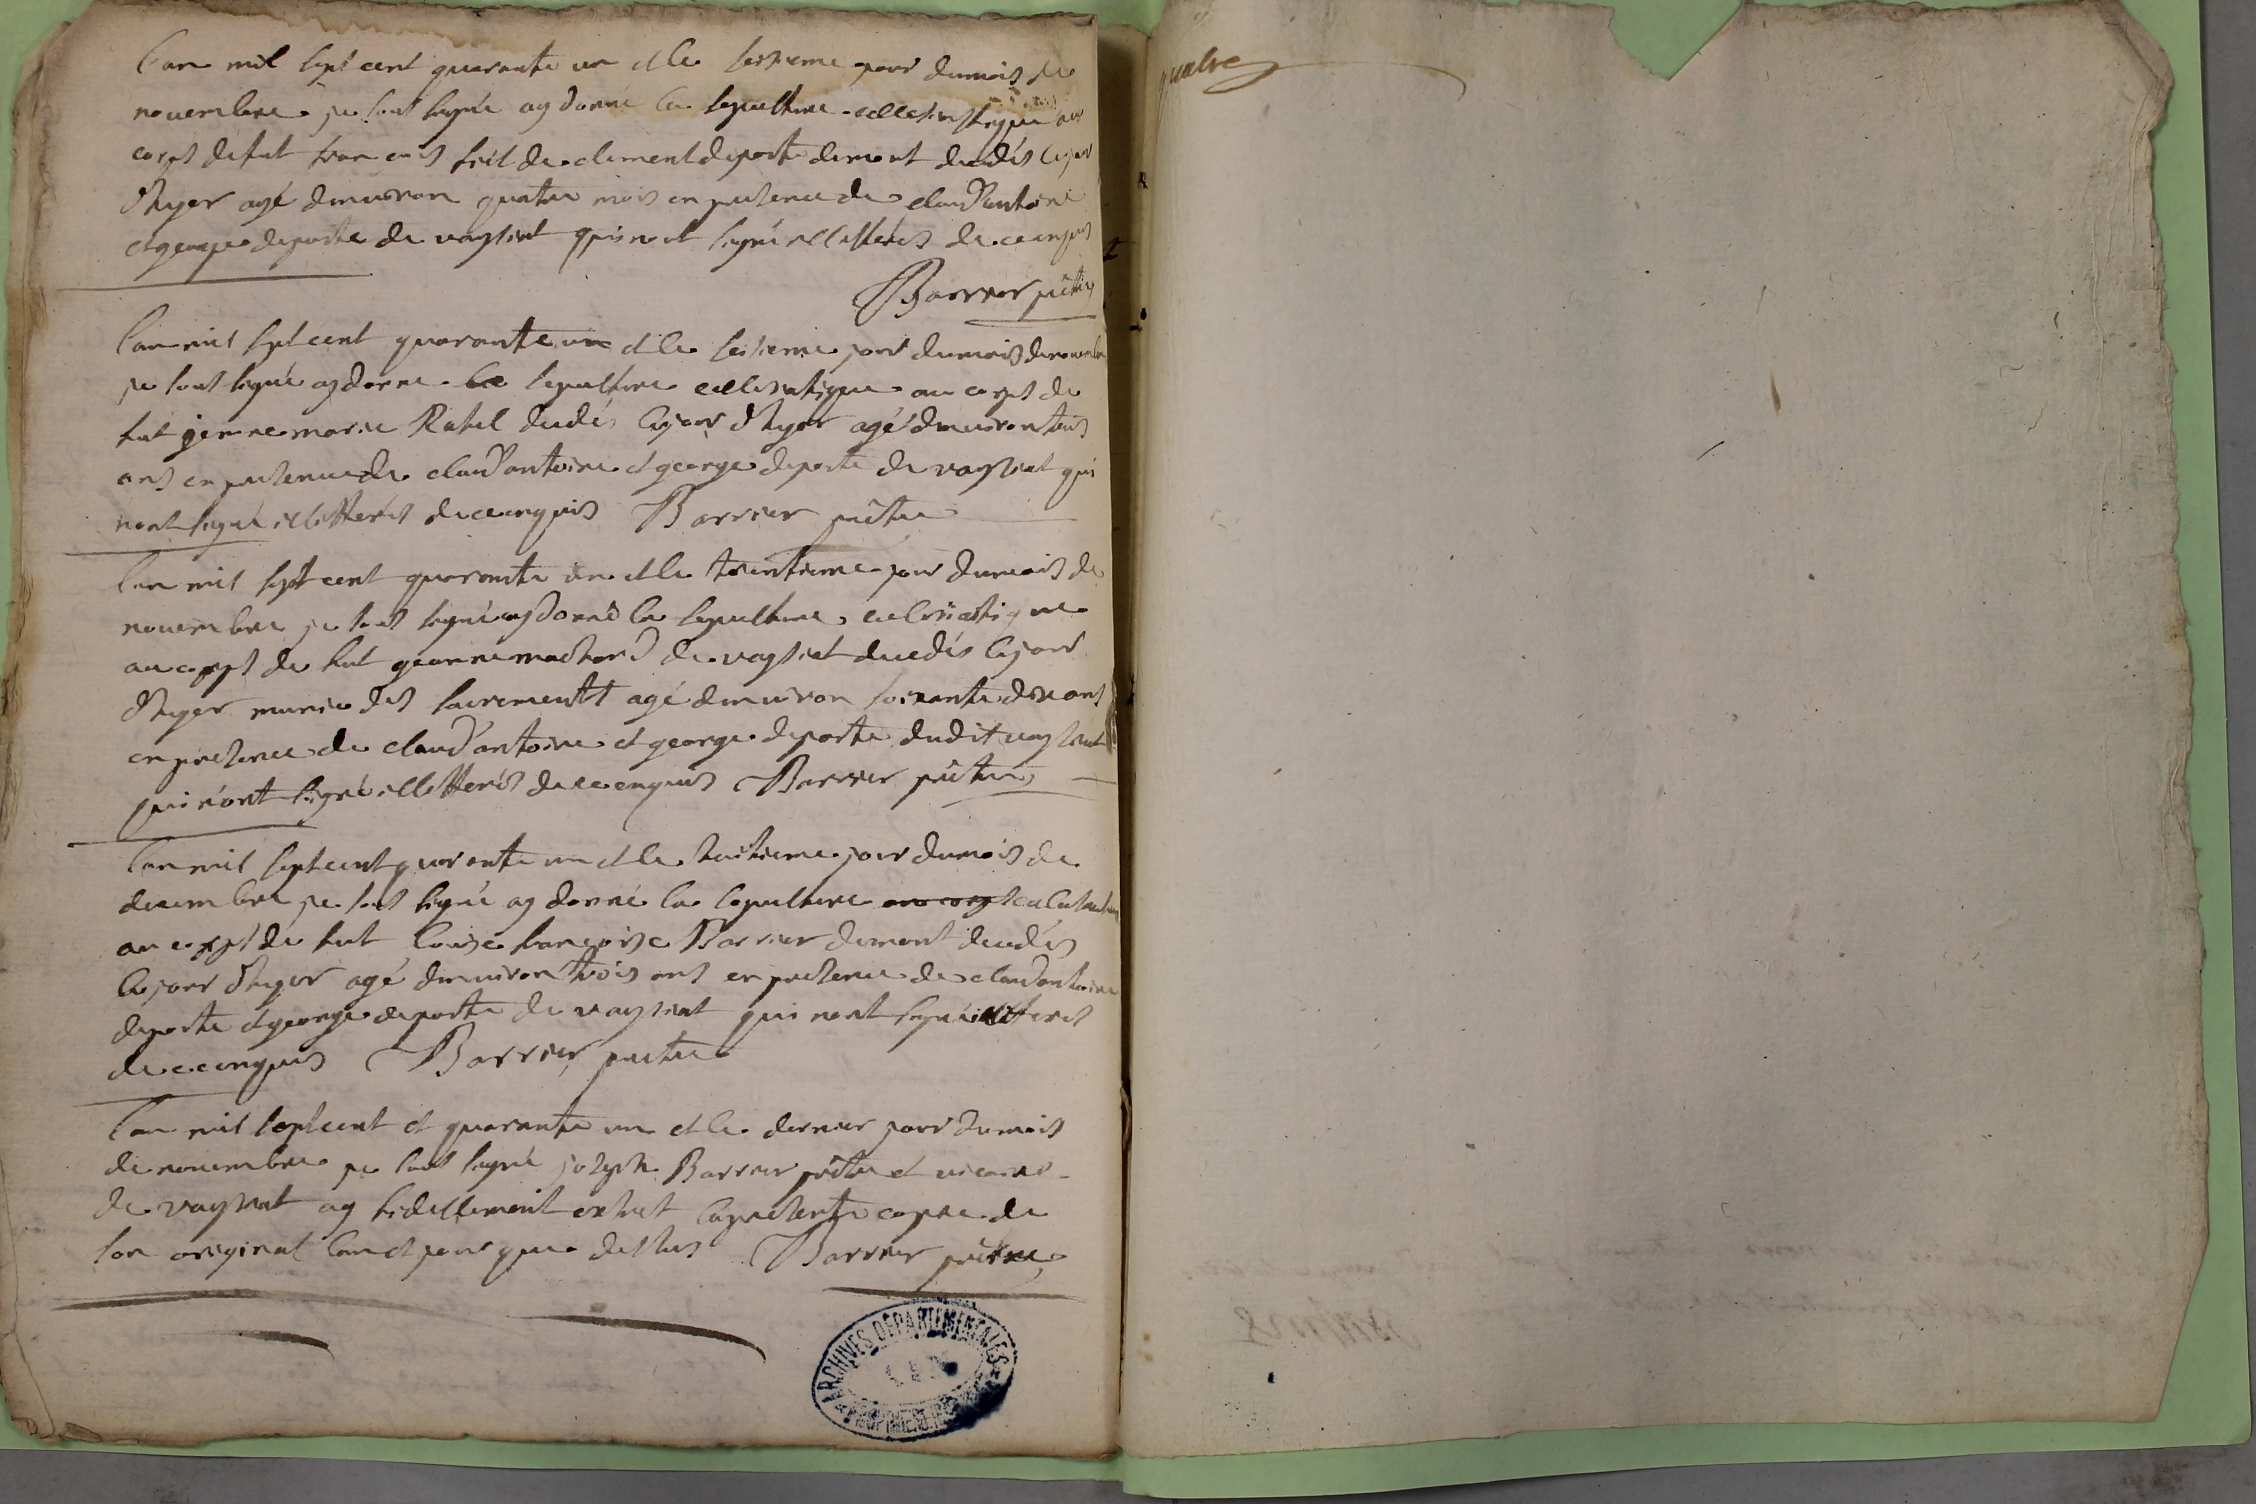 Lan mil sept cent quarante un et le sesieme jour du mois de
novembre je sous signé ay donné la sepulture ecclesiastique au
corps de fut francois fiil de clement deporte demont decedés le jour
d'hyer agé d'environ quatre mois en presence de claud'antoine
et george deporte de vaysiat qui nont signé illetterés de ce enquis
Barrier prêtre
Lan mil sept cent quarante un et le sesieme jour du mois de novembre
je sous signé ay donné la sepulture ecclesiastique au corps de
fut jenne marie Ratel decedés le jour d'hyer agé d'environ trois
ans en presence de claud'antoine et george deporte de vaysiat qui
nont signé illetterés de ce enquis Barrier prêtre
Lan mil sept cent quarante un et le trentieme jour du mois de
novembre je sous signé ay donné la sepulture eclesiastique
au corps de fut geanne machard de vaysiat decedés le jour
d'hyer munie des sacrements agé d'environ soixante dix ans
en presence de claud'antoine et george deporte dudit vaysiat
qui n'ont signé illetterés de ce enquis Barrier prêtre
Lan mil sept cent quarante un et le huitieme jour du mois de
decembre je sous signé ay donné la sepulture au corps
au corps de fut louise francoise Barrier demont decedés
le jour d'hyer agé d'environ trois ans en presence de claud'antoine
deporte et george deporte de vaysiat qui nont signé illetterés
de ce enquis Barrier prêtre
Lan mil sept cent et quarante un et le dernier jour du mois
de novembre je sous signé joseph Barrier prêtre et vicaire
de vaysiat ay fidellement extrait la presente copie de
son original lan et jour que dessus Barrier prêtre
ARCHIVES DEPARTEMENTALES
quatre